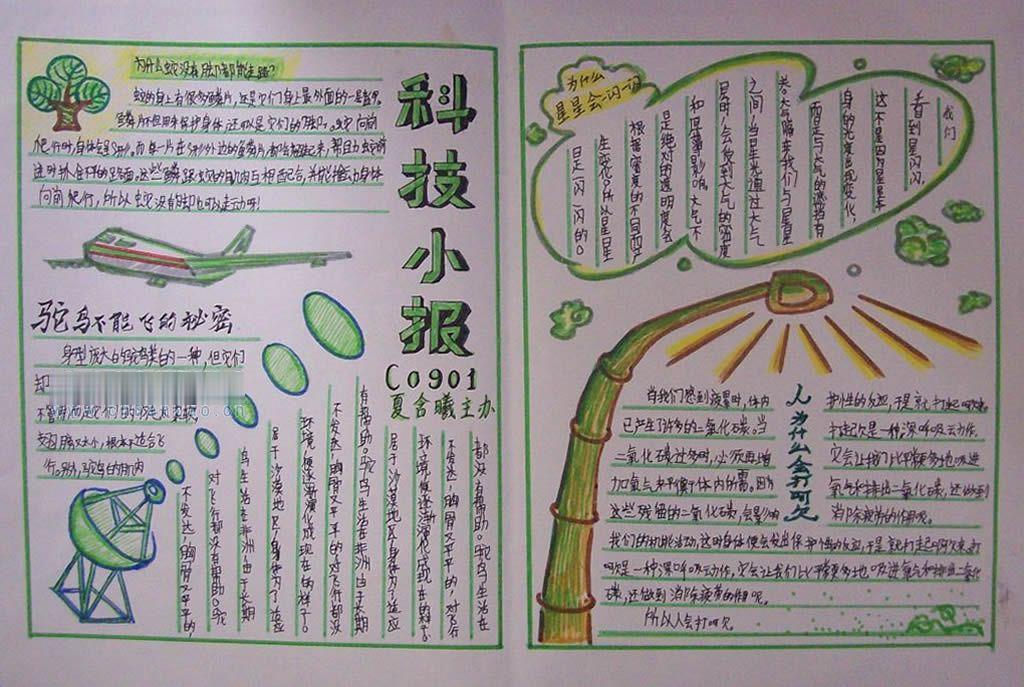 为什么蛇没有脚却能走路?
蛇的身上有很多鳞片,这是它们身上最外面的一层盔甲。
鳞片不但用来保护身体,还可以是它们的"脚"。蛇向前
爬行时,身体会呈S形。而每一片在S形外边的鳞片,都会翘起来,帮助蛇前
向前爬行,所以蛇没有脚也可以走动呀!
科
技
小
报
C0901
夏含曦主办
驼鸟不能飞的秘密
身型庞大的驼鸟是鸟类的一种,但它们
却
行。另外,驼鸟的肌肉
不发达,胸骨又平平的
对飞行都没有帮助。驼
鸟生活在非洲由于长期
居于沙漠地区,身体为了适应
环境,便逐渐演化成现在的样子。
不发达,胸骨又平平的,对飞行都没
有帮助。驼鸟生活在非洲,由于长期
居于沙漠地区,身体为了适应
环境,便逐渐演化成现在的样子。
不发达,胸骨又平平的,对飞行
都没有帮助。驼鸟生活在
为什么
星星会一闪一闪
我们
看到星闪闪,
这不是因为星星本
身的光度出现变化,
而是与大气的遮挡有
关。大气隔在我们与星星
之间,当星光通过大气
层时,会受到大气的密度
和温度影响。大气不
是绝对的透明,它会
根据密度的不同而产
生变化。所以星星
是一闪一闪的。
人为什么会打呵欠
当我们感到疲累时,体内
已产生了许多的二氧化碳。当
二氧化碳过多时,必须再增
加氧气来平衡体内所需。因为
这些残留的二氧化碳,会影响
我们的机能活动,这时身体便会发出保护性的反应,于是就打起呵欠来。打
呵欠是一种深呼吸运动,它会让我们比平常更多地吸进氧气和排出二氧化
碳,还做到消除疲劳的作用呢。
所以人会打呵欠。
护性的反应,于是就打起呵欠。
打起欠是一种深呼吸运动,
它会让我们比平常更多地吸进
氧气和排出二氧化碳,还做到
消除疲劳的作用呢。